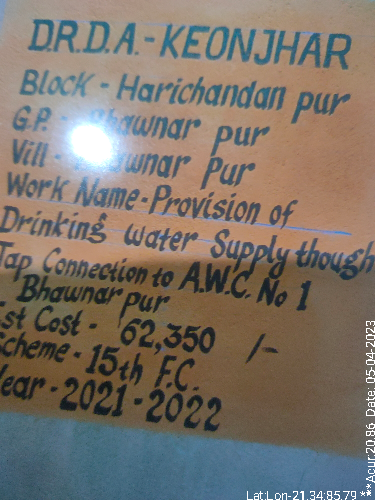 D.R.D.A. - KEONJHAR
Block - Harichandan pur
G.P. - Bhawnar pur
Vill - Bhawnar Pur
Work Name - Provision of
Drinking water Supply though
Tap Connection to A.W.C. No 1
Bhawnar pur
Est Cost - 62,350 /-
Scheme - 15th F.C.
Year - 2021 - 2022
Lat:Lon-21.34:85.79 ***Acur:20.86 Date: 05-04-2023